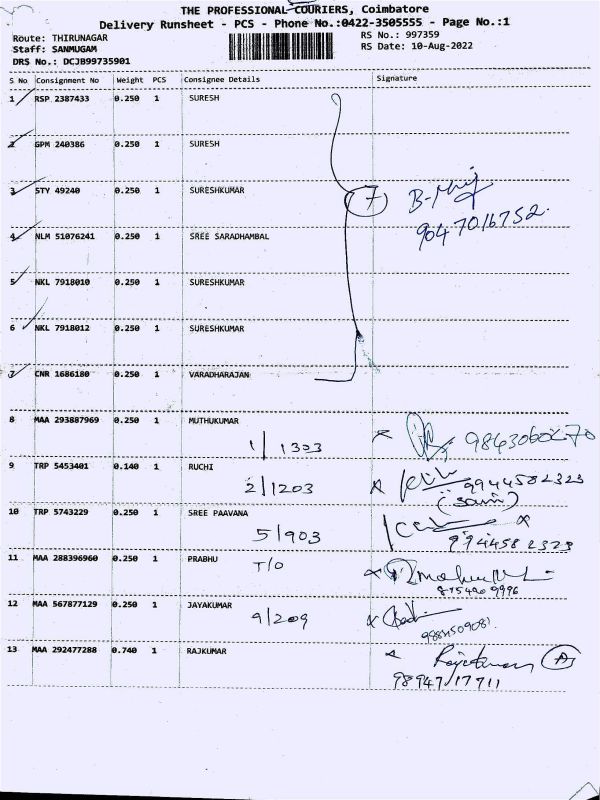 THE PROFESSIONAL COURIERS, Coimbatore
Delivery Runsheet - PCS - Phone No.:0422-3505555 - Page No.:1
Route: THIRUNAGAR
RS No.: 997359
Staff: SANMUGAM
RS Date: 10-Aug-2022
DRS No.: DCJB99735901
S No Consignment No Weight PCS Consignee Details Signature
1 RSP 2387433 0.250 1 SURESH
2 GPM 240386 0.250 1 SURESH
3 STY 49240 0.250 1 SURESHKUMAR
7
9047016752
4 NLM 51076241 0.250 1 SREE SARADHAMBAL
5 NKL 7918010 0.250 1 SURESHKUMAR
6 NKL 7918012 0.250 1 SURESHKUMAR
7 CNR 1686180 0.250 1 VARADHARAJAN
8 MAA 293887969 0.250 1 MUTHUKUMAR
1/1303
9 TRP 5453401 0.140 1 RUCHI
2/1203 9944582323
10 TRP 5743229 0.250 1 SREE PAAVANA
5/903
9944582323
11 MAA 288396960 0.250 1 PRABHU
T/O
12 MAA 567877129 0.250 1 JAYAKUMAR
9/209
13 MAA 292477288 0.740 1 RAJKUMAR
Rajkumar
9894717711